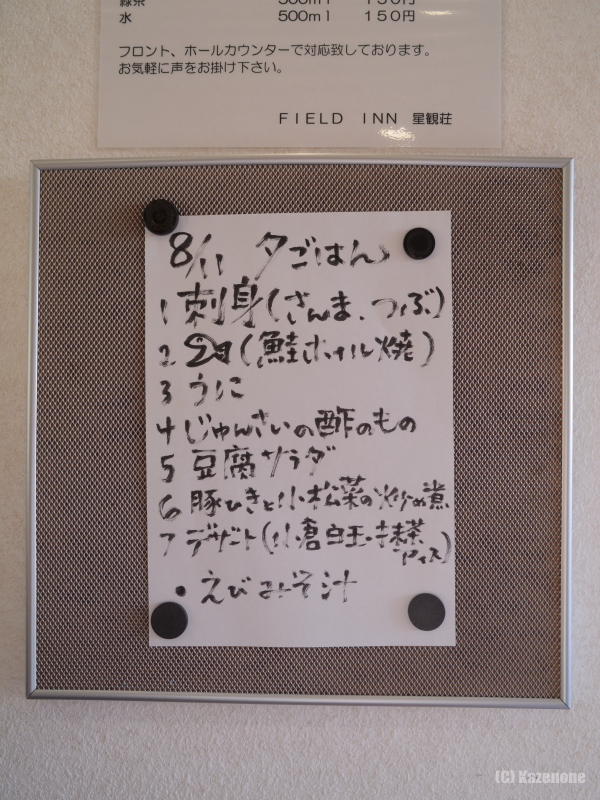 緑茶 500ml 150円
水 500ml 150円
フロント、ホールカウンターで対応致しております。
お気軽に声をお掛け下さい。
FIELD INN 星観荘
8/11 夕ごはん
1 刺身(さんま、つぶ)
2 (鮭ホイル焼)
3 うに
4 じゅんさいの酢のもの
5 豆腐サラダ
6 豚ひきと小松菜の炒め煮
7 デザート(小倉白玉・抹茶
アイス)
・えびみそ汁
(C) Kazenone